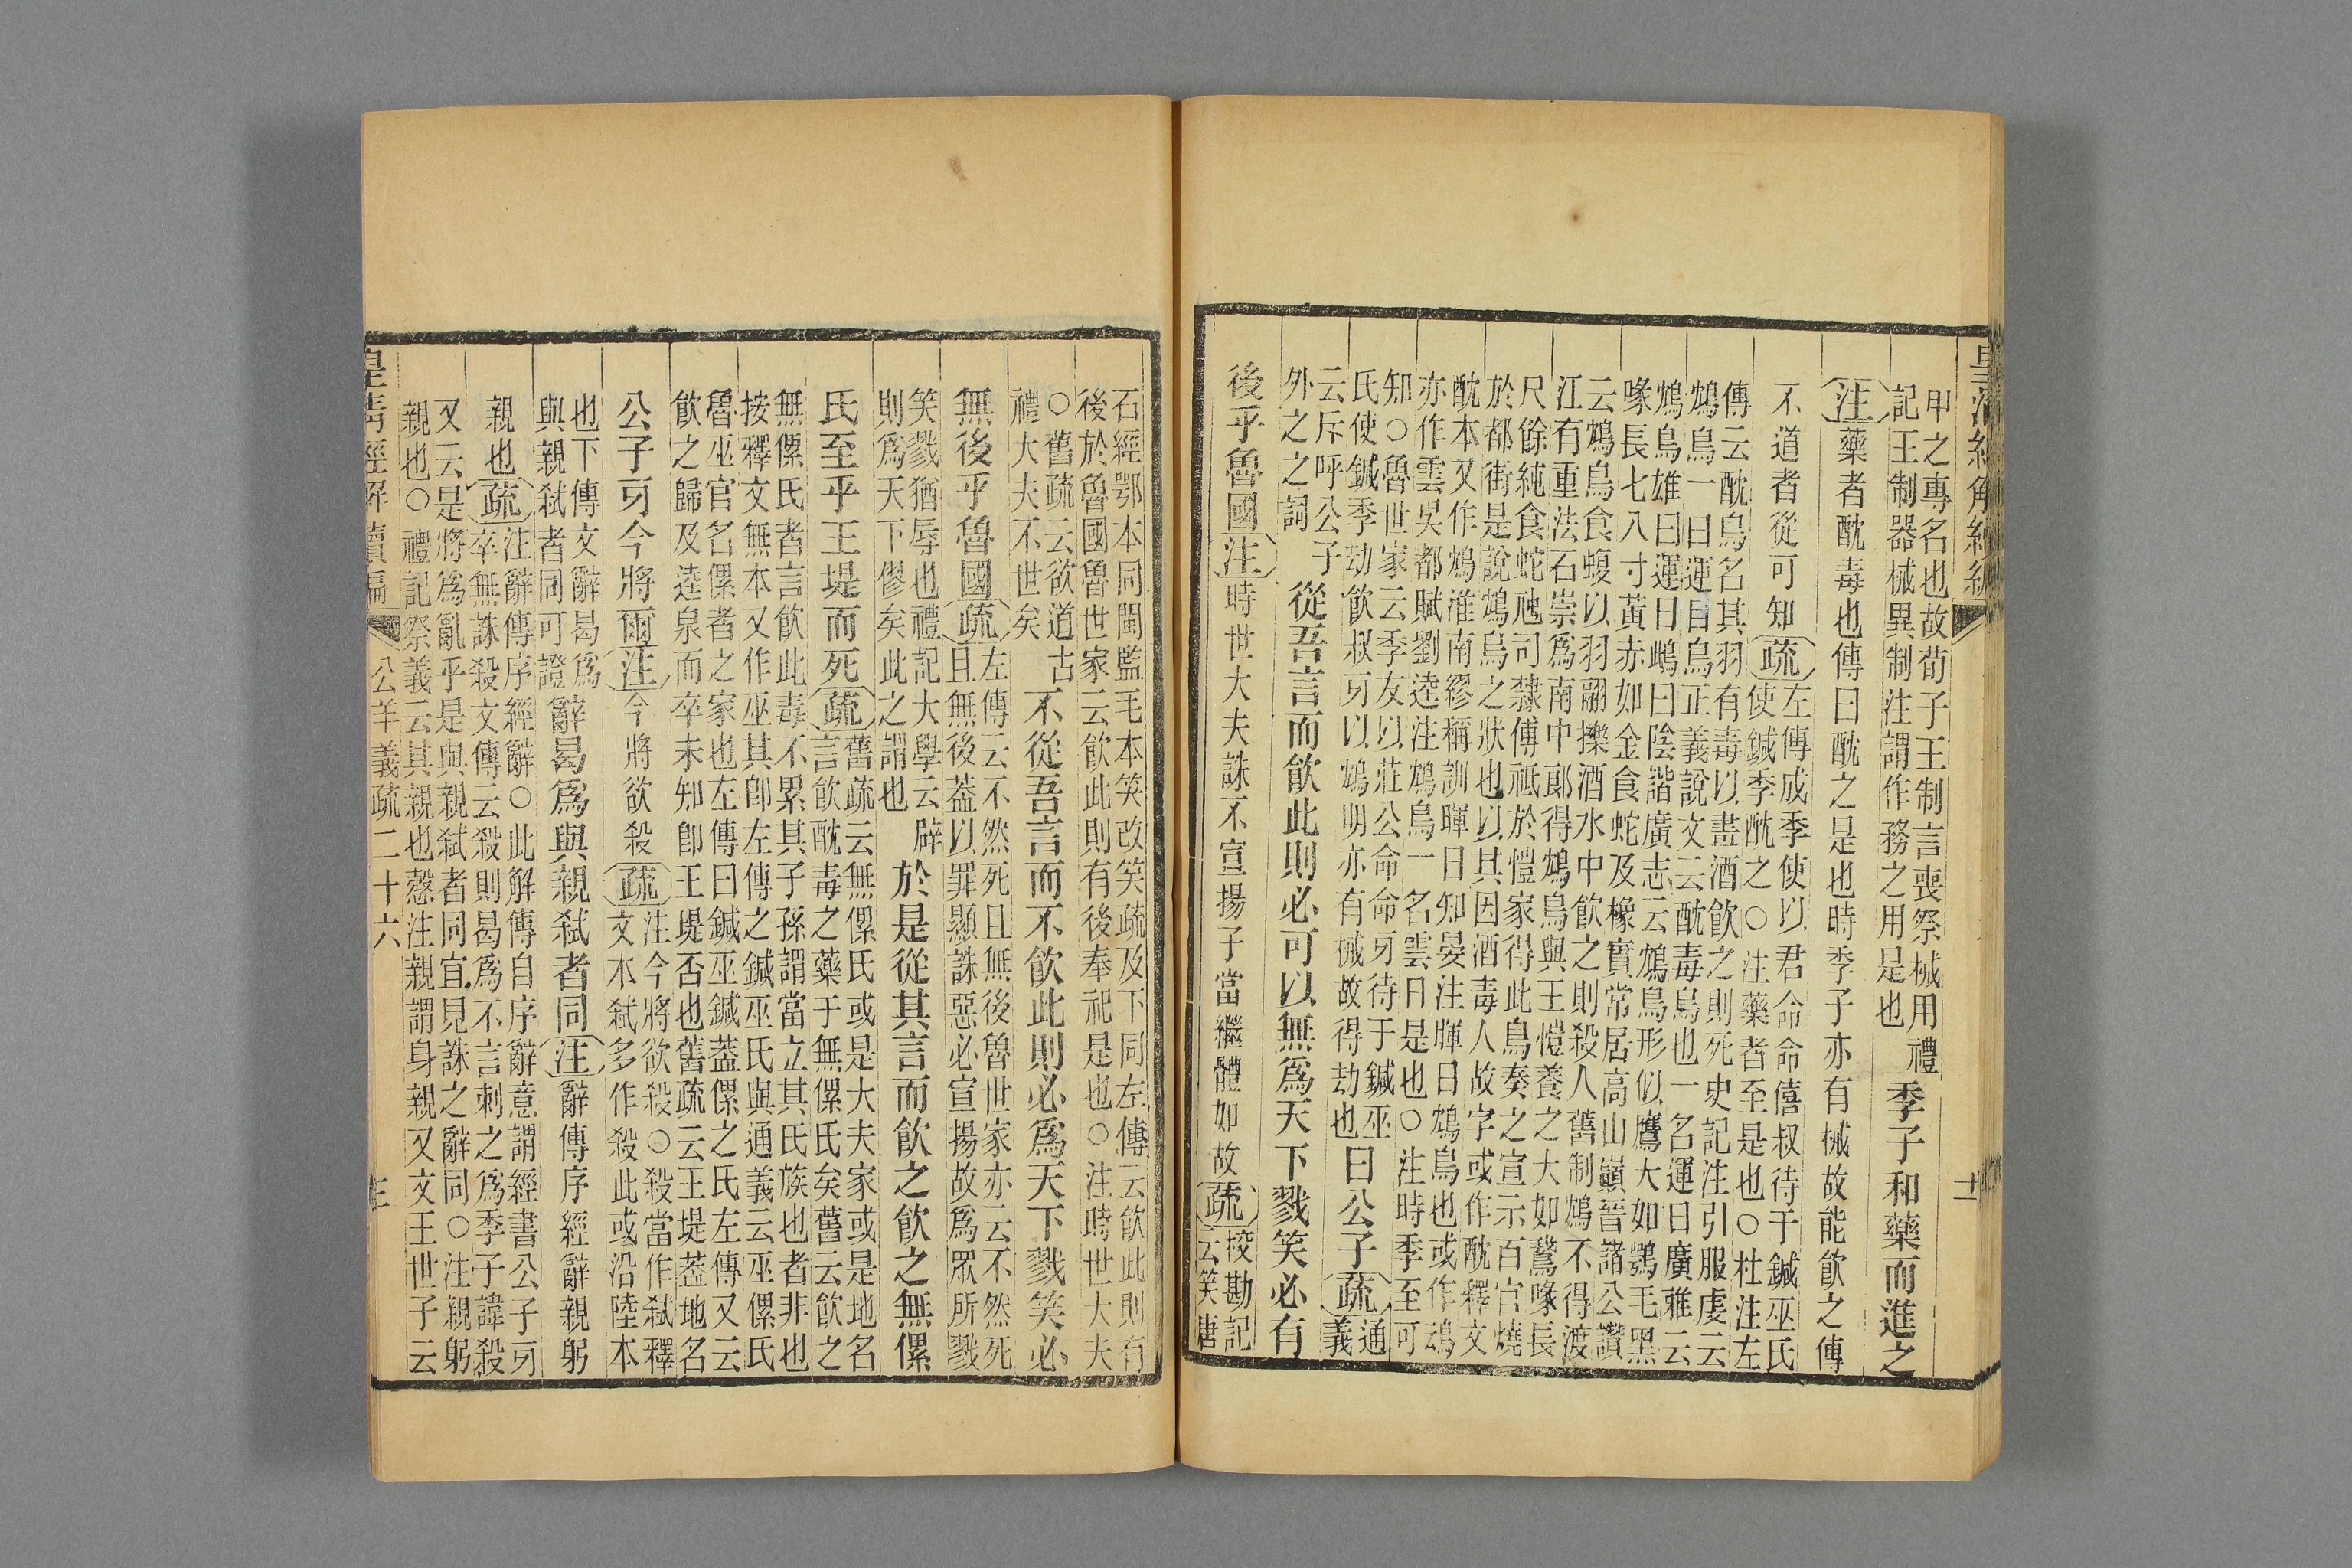 甲之專名也故荀子王制言喪祭械用禮
記王制器械異制注謂作務之用是也
季子和藥而進之
注藥者酖毒也傳曰酖之是也時季子亦有械故能飲之傳
不道者從可知疏
左傳成季使以君命命僖叔待于鍼巫氏
使鍼季酖之○注藥者至是也○杜注左
傳云酖鳥名其羽有毒以畫酒飲之則死史記注引服虔云
鴆鳥一曰運日鳥正義說文云酖毒鳥也一名運日廣雅云
鴆鳥雄曰運日雌曰陰諧廣志云鴆鳥形似鷹大如鶚毛黑
喙長七八寸黃赤如金食蛇及橡實常居高山巔晉諸公讚
云鴆鳥食蝮以羽翮擽酒水中飲之則殺人舊制鴆不得渡
江有重法石崇爲南中郎得鴆鳥與王愷養之大如鵞喙長
尺餘純食蛇虺司隸傅祗於愷家得此鳥奏之宣示百官燒
於都街是說鴆鳥之狀也以其因酒毒人故字或作酖釋文
酖本又作鴆淮南繆稱訓暉日知晏注暉日鴆鳥也或作䲰
亦作雲吳都賦劉逵注鴆鳥一名雲日是也○注時季至可
知○魯世家云季友以莊公命命牙待于鍼巫
氏使鍼季劫飲叔牙以鴆明亦有械故得劫也
曰公子疏
通
義
云斥呼公子
外之之詞
從吾言而飲此則必可以無爲天下戮笑必有
後乎魯國注時世大夫誅不宣揚子當繼體如故疏
挍勘記
云笑唐
石經鄂本同閩監毛本笑改笑疏及下同左傳云飲此則有
後於魯國魯世家云飲此則有後奉祀是也○注時世大夫
○舊疏云欲道古
禮大夫不世矣
不從吾言而不飲此則必爲天下戮笑必
無後乎魯國疏
左傳云不然死且無後魯世家亦云不然死
且無後葢以罪顯誅惡必宣揚故爲眾所戮
笑戮猶辱也禮記大學云辟
則爲天下僇矣此之謂也
於是從其言而飲之飲之無傫
氏至乎王堤而死疏
舊疏云無傫氏或是大夫家或是地名
言飲酖毒之藥于無傫氏矣舊云飲之
無傫氏者言飲此毒不累其子孫謂當立其氏族也者非也
按釋文無本又作巫其卽左傳之鍼巫氏與通義云巫傫氏
魯巫官名傫者之家也左傳曰鍼巫鍼葢傫之氏左傳又云
飲之歸及逵泉而卒未知卽王堤否也舊疏云王堤葢地名
公子牙今將爾注今將欲殺疏
注今將欲殺○殺當作弒釋
文本弒多作殺此或沿陸本
也下傳文辭曷爲
與親弒者同可證
辭曷爲與親弒者同注辭傳序經辭親躬
親也疏
注辭傳序經辭○此解傳自序辭意謂經書公子牙
卒無誅殺文傳云殺則曷爲不言刺之爲季子諱殺
又云是將爲亂乎是與親弒者同宜見誅之辭同○注親躬
親也○禮記祭義云其親也愨注親謂身親又文王世子云
皇清經解續編
公羊義疏二十六